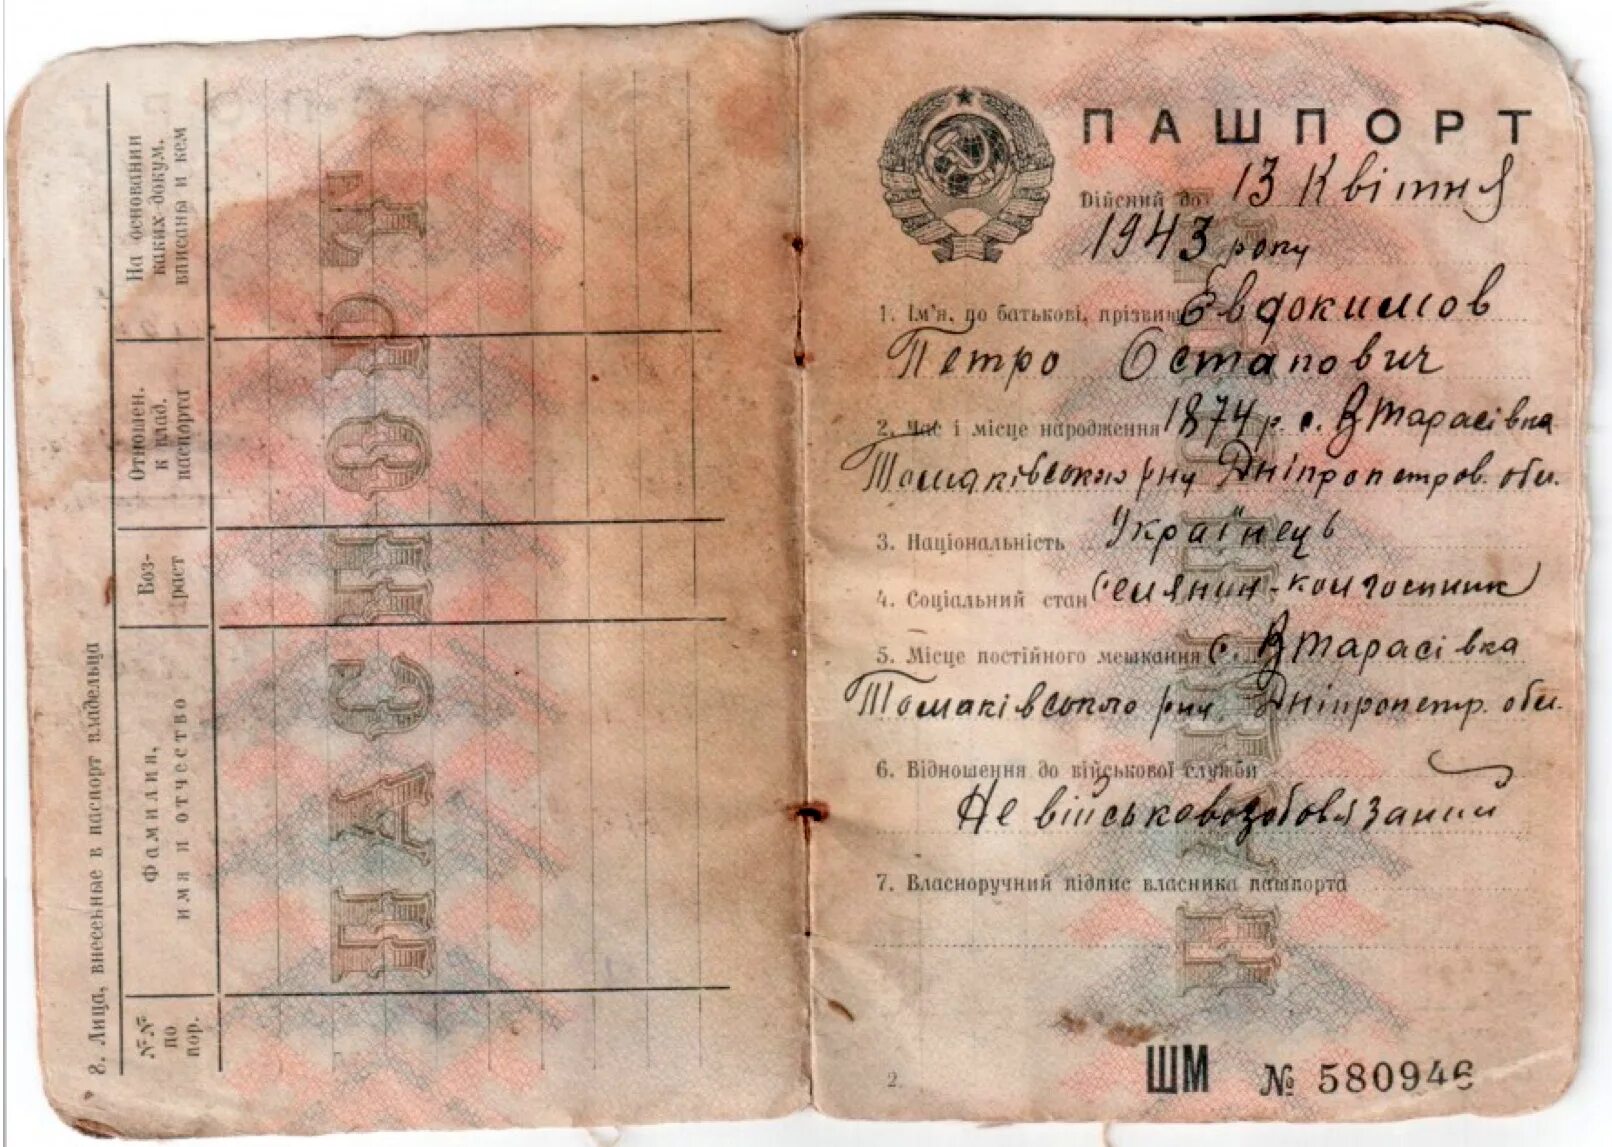 8. Лица, внесенные в паспорт владельца
№№ по пор.
Фамилия, имя и отчество
Возраст
Отношен. к влад. паспорта
На основании каких докум. вписаны и кем
ПАСПОРТ
ПАШПОРТ
Дійсний до 13 Квітня
1943 року
1. Ім'я, по батькові, прізвище Євдокимов
Петро Остапович
2. Час і місце народження 1874 р. с. В Тарасівка
Томаківського р-ну Дніпропетров. обл.
3. Національність Українець
4. Соціальний стан Селянин-колгоспник
5. Місце постійного мешкання с. В Тарасівка
Томаківського р-ну, Дніпропетр. обл.
6. Відношення до військової служби
Не військовозобовязаний
7. Власноручний підпис власника пашпорта
2.
ШМ № 580946